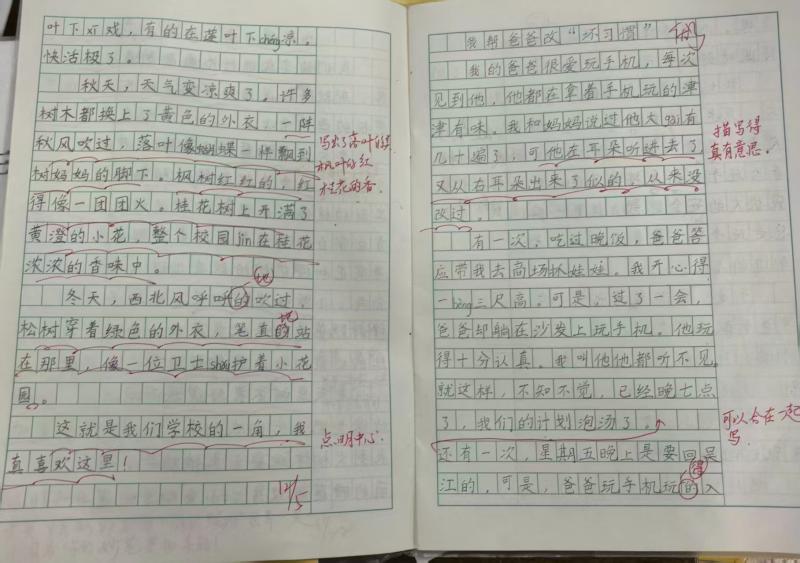 叶下xī戏，有的在莲叶下chéng凉。
快活极了。
秋天，天气变凉爽了。许多
树木都换上了黄色的外衣，一阵
秋风吹过，落叶像蝴蝶一样飘到
树妈妈的脚下，枫树红红的，红
得像一团团火。桂花树上开满了
黄澄的小花，整个校园jìn在桂花
浓浓的香味中。
写出了落叶的
枫叶的红
桂花的香
冬天，西北风呼呼的吹过
地
松树穿着绿色的外衣，笔直的站
地
在那里，像一位卫士shǒu护着小花
园。
这就是我们学校的一角，我
真喜欢这里！
点明中心
12/5
我帮爸爸改“坏习惯”
我的爸爸很爱玩手机，每次
见到他，他都在拿着手机玩的津
津有味。我和妈妈说过他大gài有
几十遍了，可他左耳朵听进去了
又从右耳朵出来了似的，从来没
改过。
描写得
真有意思．
有一次，吃过晚饭，爸爸答
应带我去商场抓娃娃。我开心得
一bèng三尺高。可是，过了一会，
爸爸却躺在沙发上玩手机。他玩
得十分认真。我叫他他都听不见。
就这样，不知不觉，已经晚七点
了，我们的计划泡汤了。
可以合在一起
写．
还有一次，星期五晚上是要回吴
江的，可是，爸爸玩手机玩的入
得